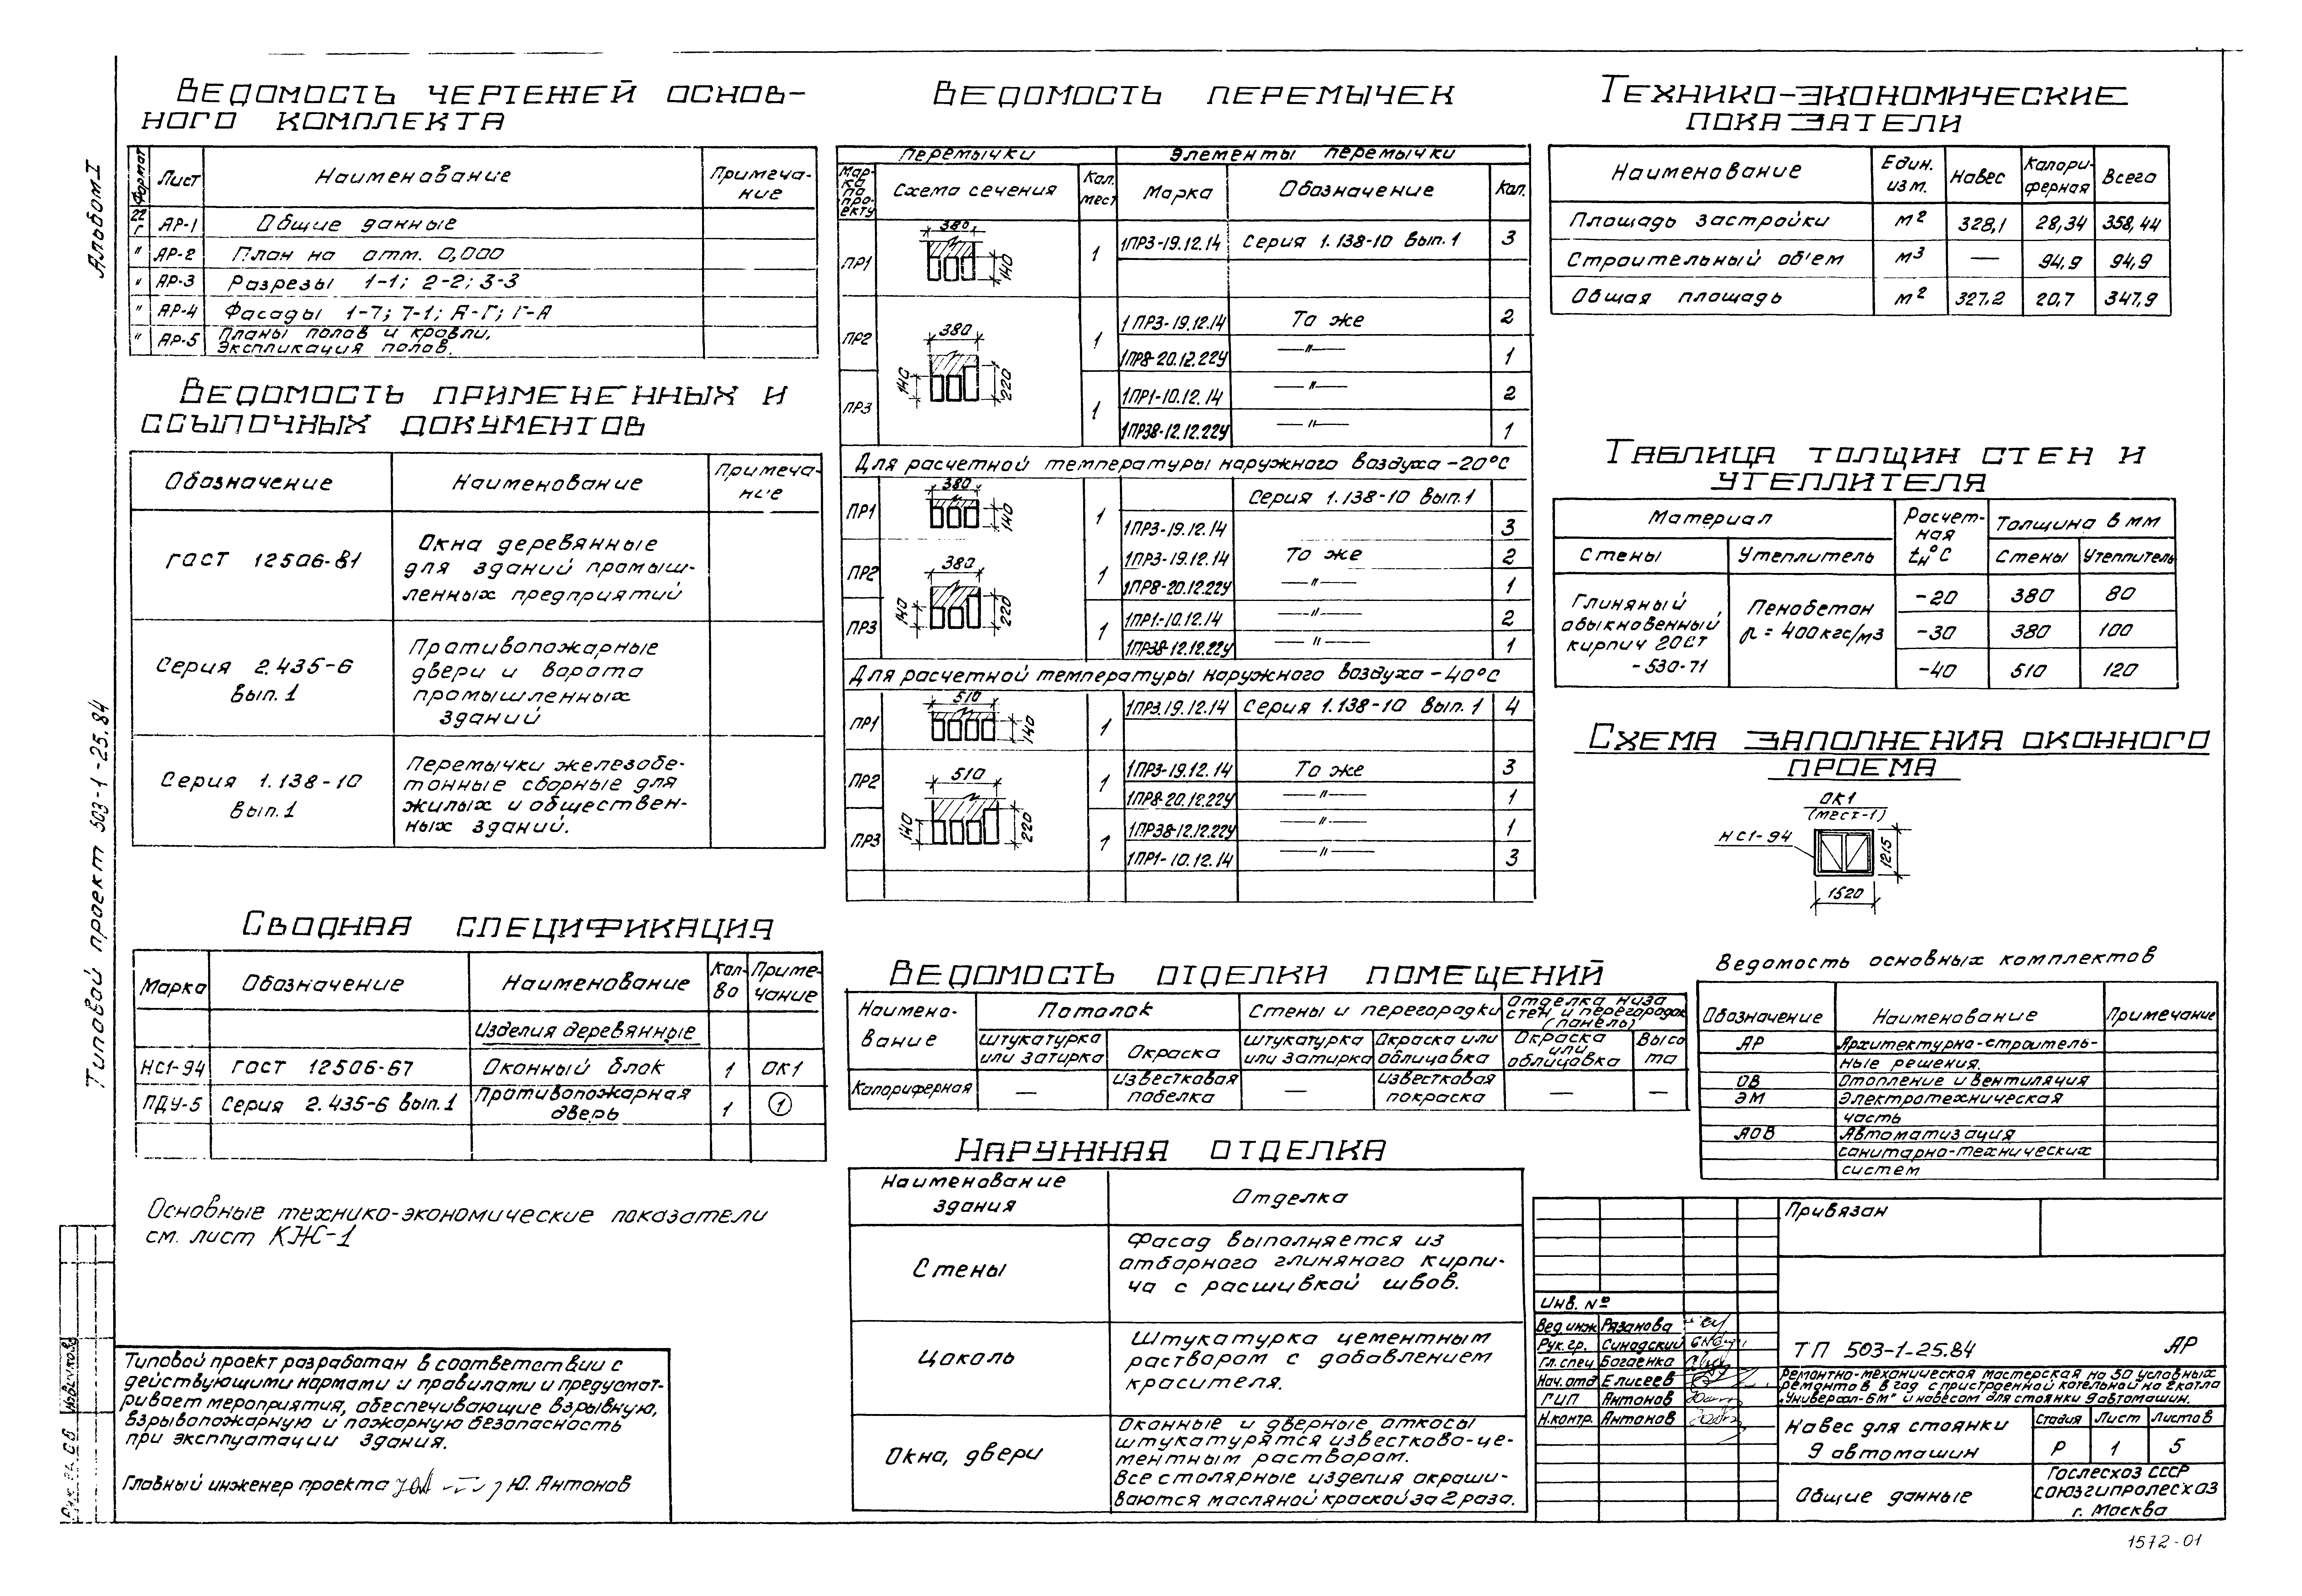 Альбом I
Типовой проект 503-1-25.84
Ведомость чертежей основ-
ного комплекта
Формат Лист Наименование Примеча-
ние
22
г АР-1 Общие данные
" АР-2 План на отм. 0,000
" АР-3 Разрезы 1-1; 2-2; 3-3
" АР-4 Фасады 1-7; 7-1; А-Г; Г-А
" АР-5 Планы полов и кровли.
Экспликация полов.
Ведомость примененных и
ссылочных документов
Обозначение Наименование Примеча-
ние
ГОСТ 12506-81 Окна деревянные
для зданий промыш-
ленных предприятий
Серия 2.435-6
вып.1
Противопожарные
двери и ворота
промышленных
зданий
Серия 1.138-10
вып.1
Перемычки железобе-
тонные сборные для
жилых и обществен-
ных зданий.
Сводная спецификация
Марка Обозначение Наименование Кол-
во Приме-
чание
Изделия деревянные
НС1-94 ГОСТ 12506-67 Оконный блок 1 ОК1
ПДУ-5 Серия 2.435-6 вып.1 Противопожарная
дверь 1 1
Основные технико-экономические показатели
см. лист КЖ-1
Типовой проект разработан в соответствии с
действующими нормами и правилами и предусмат-
ривает мероприятия, обеспечивающие взрывную,
взрывопожарную и пожарную безопасность
при эксплуатации здания.
Главный инженер проекта Ю. Антонов
Ведомость перемычек
Перемычки Элементы перемычки
Мар-
ка
по
про-
екту Схема сечения Кол.
мест Марка Обозначение Кол.
ПР1 380 140 1 1ПР3-19.12.14 Серия 1.138-10 вып.1 3
ПР2 380 140 220 1 1ПР3-19.12.14 То же 2
1ПР8-20.12.22У —"— 1
ПР3 1 1ПР1-10.12.14 —"— 2
1ПР38-12.12.22У —"— 1
Для расчетной температуры наружного воздуха -20°С
ПР1 380 140 1 Серия 1.138-10 вып.1
1ПР3-19.12.14 3
ПР2 380 140 220 1 1ПР3-19.12.14 То же 2
1ПР8-20.12.22У —"— 1
ПР3 1 1ПР1-10.12.14 —"— 2
1ПР38-12.12.22У —"— 1
Для расчетной температуры наружного воздуха -40°С
ПР1 510 140 1 1ПР3.19.12.14 Серия 1.138-10 вып.1 4
ПР2 510 140 220 1 1ПР3-19.12.14 То же 3
1ПР8-20.12.22У —"— 1
ПР3 1 1ПР38-12.12.22У —"— 1
1ПР1-10.12.14 —"— 3
Ведомость отделки помещений
Наимено-
вание Потолок Стены и перегородки Отделка низа
стен и перегородок
(панель)
Штукатурка
или затирка Окраска Штукатурка
или затирка Окраска или
облицовка Окраска
или
облицовка Высо
та
Калориферная — Известковая
побелка — Известковая
покраска — —
Наружная отделка
Наименование
здания Отделка
Стены Фасад выполняется из
отборного глиняного кирпи-
ча с расшивкой швов.
Цоколь Штукатурка цементным
раствором с добавлением
красителя.
Окна, двери Оконные и дверные откосы
штукатурятся известково-це-
ментным раствором.
Все столярные изделия окраши-
ваются масляной краской за 2 раза.
Технико-экономические
показатели
Наименование Един.
изм. Навес Калори-
ферная Всего
Площадь застройки м² 328,1 28,34 358,44
Строительный объем м³ — 94,9 94,9
Общая площадь м² 327,2 20,7 347,9
Таблица толщин стен и
утеплителя
Материал Расчет-
ная
tн°С Толщина в мм
Стены Утеплитель Стены Утеплитель
Глиняный
обыкновенный
кирпич ГОСТ
-530-71
Пенобетон
γ = 400 кгс/м3
-20 380 80
-30 380 100
-40 510 120
Схема заполнения оконного
проема
ОК1
(мест-1)
НС1-94
1215
1520
Ведомость основных комплектов
Обозначение Наименование Примечание
АР Архитектурно-строитель-
ные решения.
ОВ Отопление и вентиляция
ЭМ Электротехническая
часть
АОВ Автоматизация
санитарно-технических
систем
Привязан
Инв. №
Вед.инж Рязанова
Рук.гр. Синадский
Гл.спец Богаенко
Нач.отд Елисеев
ГИП Антонов
Н.контр. Антонов
ТП 503-1-25.84 АР
Ремонтно-механическая мастерская на 50 условных
ремонтов в год с пристроенной котельной на 2 котла
„Универсал-6М" и навесом для стоянки 9 автомашин.
Навес для стоянки
9 автомашин
Стадия Лист Листов
Р 1 5
Общие данные
Гослесхоз СССР
Союзгипролесхоз
г. Москва
1572-01